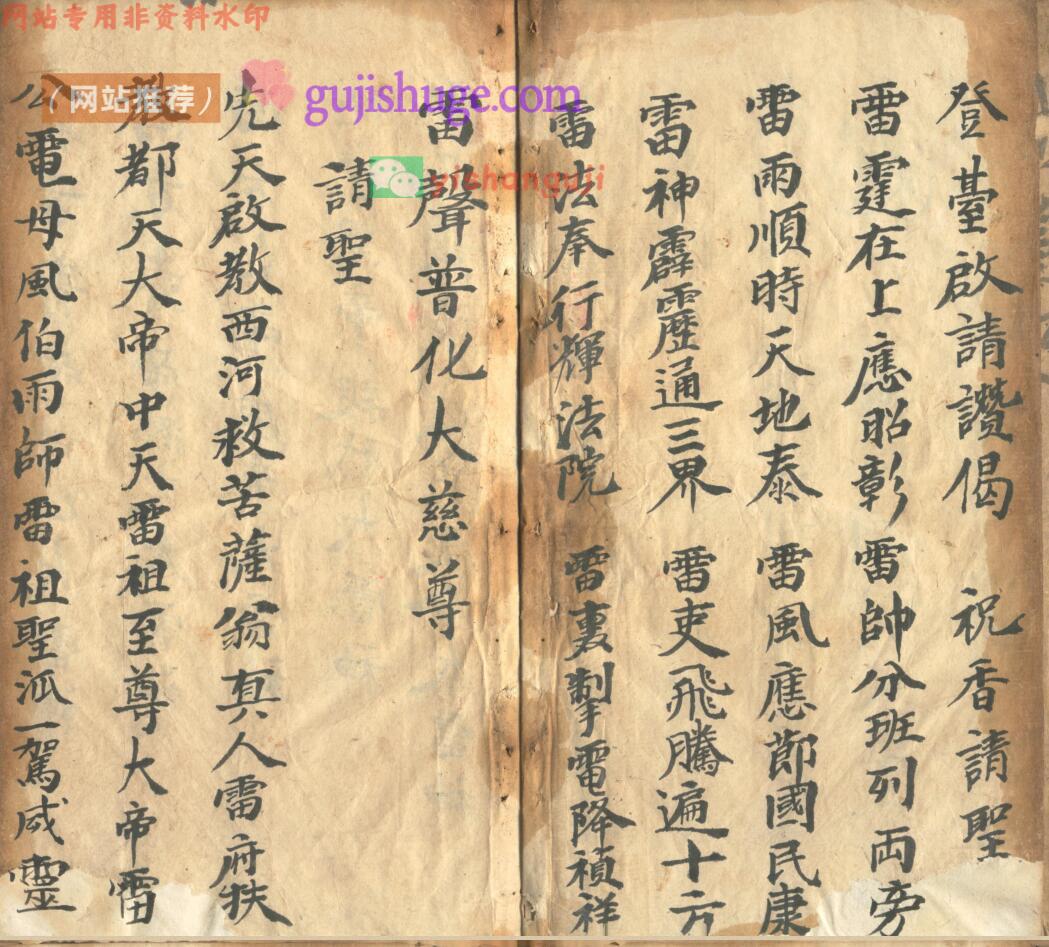 网站专用非资料水印
登臺啟請讚偈 祝香請聖
雷霆在上應昭彰 雷帥分班列両旁
雷雨順時天地泰 雷風應節國民康
雷神霹靂通三界 雷吏飛騰遍十方
雷法奉行輝法院 雷裏掣電降禎祥
雷聲普化大慈尊
請聖
先天啟教西河救苦薩翁真人雷府
都天大帝中天雷祖至尊大帝雷
公電母風伯雨師雷祖聖派一駕威靈
(网站推荐)
gujishuge.com
yishanguji